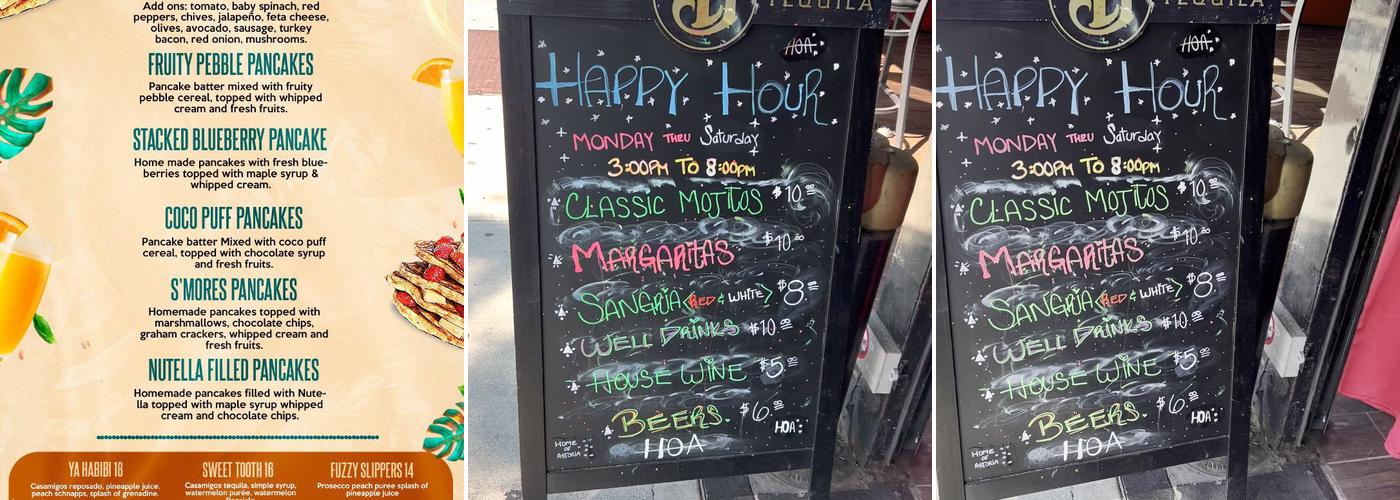 Add ons: tomato, baby spinach, red
peppers, chives, jalapeño, feta cheese,
olives, avocado, sausage, turkey
bacon, red onion, mushrooms.
FRUITY PEBBLE PANCAKES
Pancake batter mixed with fruity
pebble cereal, topped with whipped
cream and fresh fruits.
STACKED BLUEBERRY PANCAKE
Home made pancakes with fresh blue-
berries topped with maple syrup &
whipped cream.
COCO PUFF PANCAKES
Pancake batter Mixed with coco puff
cereal, topped with chocolate syrup
and fresh fruits.
S'MORES PANCAKES
Homemade pancakes topped with
marshmallows, chocolate chips,
graham crackers, whipped cream and
fresh fruits.
NUTELLA FILLED PANCAKES
Homemade pancakes filled with Nute-
lla topped with maple syrup whipped
cream and chocolate chips.
YA HABIBI 18
Casamigos reposado, pineapple juice,
peach schnapps, splash of grenadine.
SWEET TOOTH 16
Casamigos tequila, simple syrup,
watermelon purée, watermelon
FUZZY SLIPPERS 14
Prosecco peach puree splash of
pineapple juice
TEQUILA
HOA
HAPPY HOUR
MONDAY THRU Saturday
3:00PM TO 8:00pm
CLASSIC MOJITOS $10.00
MARGARITAS $10.00
SANGRIA <RED & WHITE> $8.00
WELL DRINKS $10.00
HOUSE WINE $5.00
BEERS. $6.00
HOA
HOME OF ASTORIA
HOA
TEQUILA
HOA
HAPPY HOUR
MONDAY THRU Saturday
3:00PM TO 8:00pm
CLASSIC MOJITOS $10.00
MARGARITAS $10.00
SANGRIA <RED & WHITE> $8.00
WELL DRINKS $10.00
HOUSE WINE $5.00
BEERS. $6.00
HOA
HOME OF ASTORIA
HOA